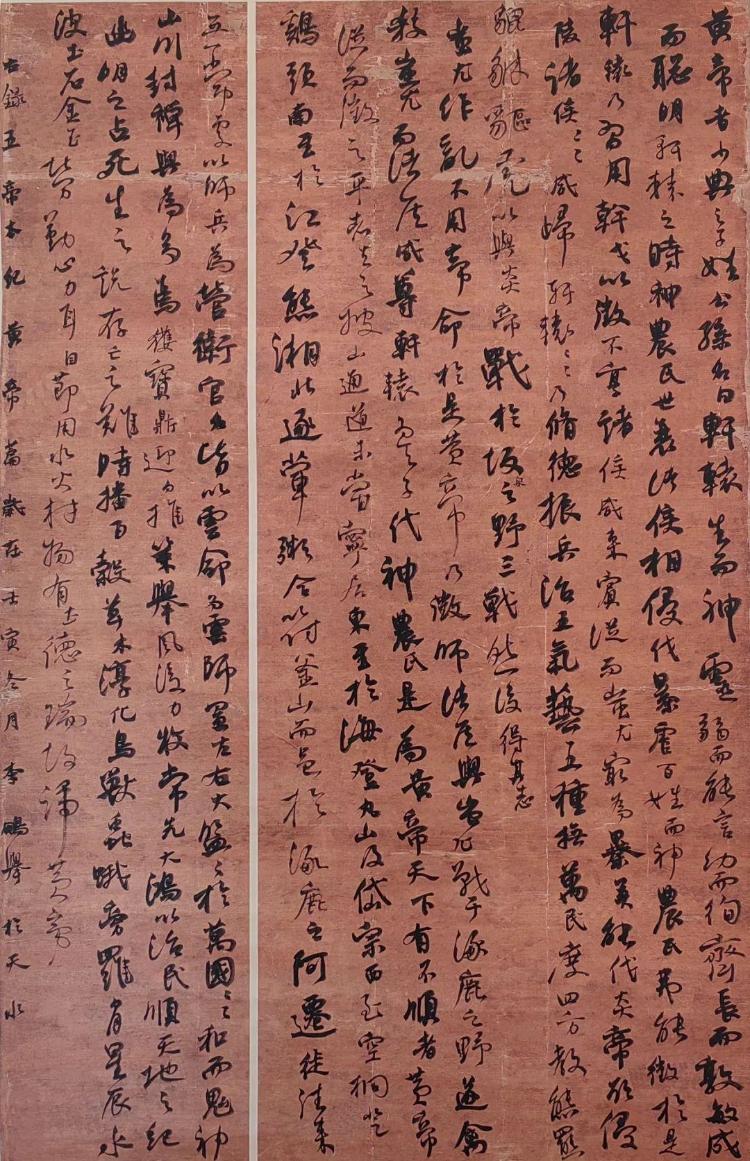 黄帝者少典之子姓公孫名曰軒轅生而神靈弱而能言幼而徇齊長而敦敏成
而聰明軒轅之時神農氏世衰諸侯相侵伐暴虐百姓而神農氏弗能徵於是
軒轅乃習用幹戈以徵不享諸侯咸來賓從而蚩尤最為暴莫能伐炎帝欲侵
陵諸侯諸侯咸歸軒轅軒轅乃脩德振兵治五氣藝五種撫萬民度四方教熊羆
貔貅貙虎以與炎帝戰於坂泉之野三戰然後得其志
蚩尤作亂不用帝命於是黄帝乃徵師諸侯與蚩尤戰于涿鹿之野遂禽
殺蚩尤而諸侯咸尊軒轅為天子代神農氏是為黄帝天下有不順者黄帝
從而徵之平者去之披山通道未嘗寧居東至於海登丸山及岱宗西至空桐登
鷄頭南至於江登熊湘北逐葷粥合符釜山而邑於涿鹿之阿遷徙往來
無常處以師兵為營衛官名皆以雲命為雲師置左右大監監於萬國萬國和而鬼神
山川封禪與為多焉獲寶鼎迎日推筴舉風後力牧常先大鴻以治民順天地之紀
幽明之占死生之說存亡之難時播百穀草木淳化鳥獸蟲蛾旁羅日月星辰水
波土石金玉勞勤心力耳目節用水火材物有土德之瑞故號黄帝
右録五帝本纪黄帝篇歲在壬寅冬月李鵬舉於天水